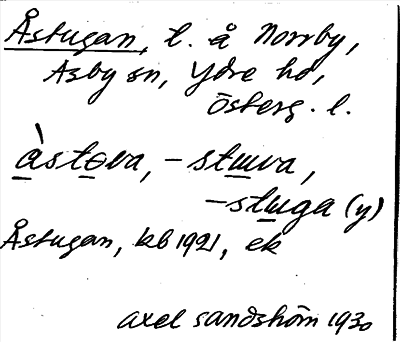 Åstugan, t. å Norrby,
Asby sn, Ydre hd,
Österg. l.
àstɵva, -stɯva,
-stɯga (y)
Åstugan, kb 1921, ek
Axel Sandström 1930